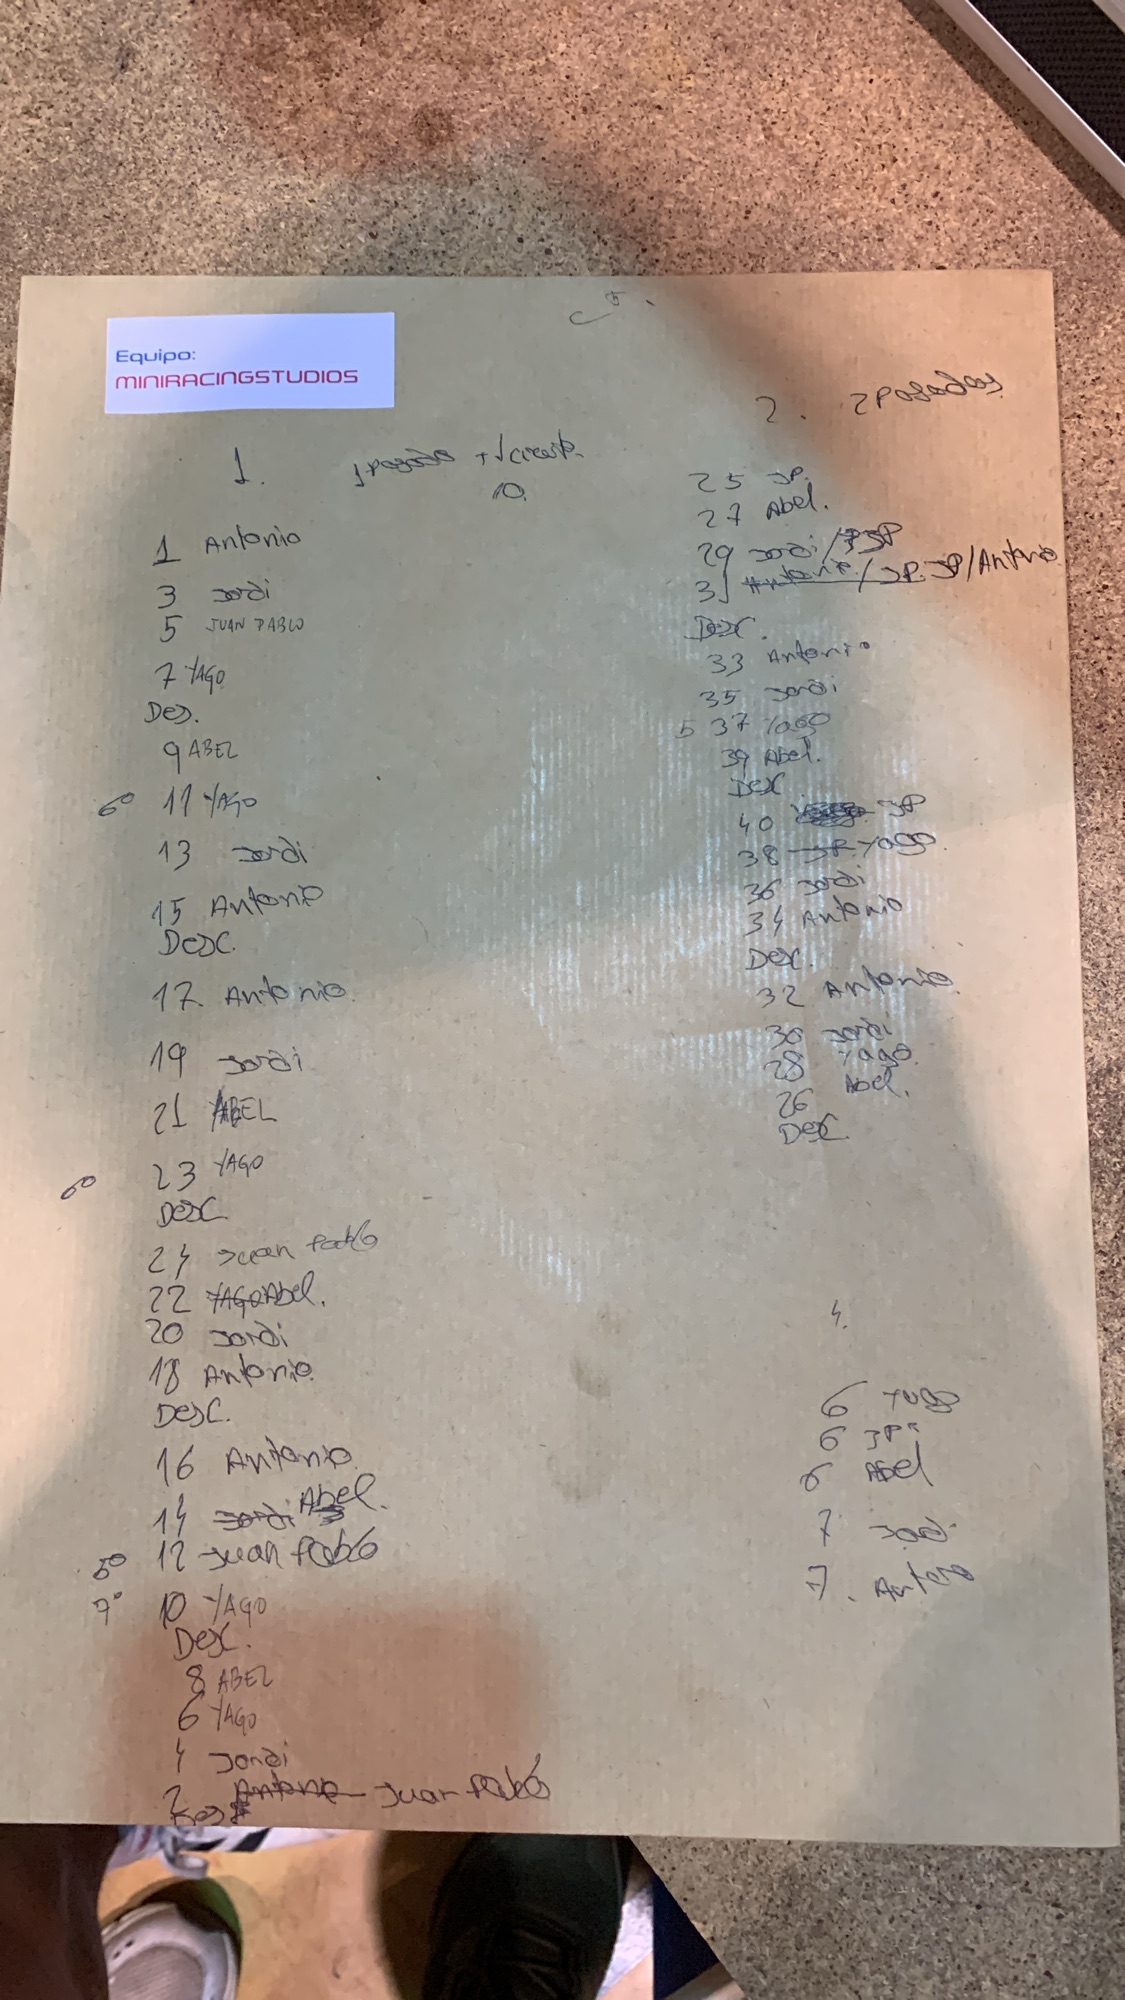 Equipo:
MINIRACINGSTUDIOS
1.
10.
1 Antonio
3 Jordi
5 JUAN PABLO
7 YAGO
Des.
9 ABEL
6º 11 YAGO
13 Jordi
15 Antonio
Desc.
17. Antonio.
19 Jordi
21 ABEL
6º 23 YAGO
Desc
24 Juan Pablo
22 YAGO Abel.
20 Jordi
18 Antonio.
Desc.
16 Antonio
14 Jordi Abel.
5º 12 Juan Pablo
7º 10 YAGO
Desc.
8 ABEL
6 YAGO
4 Jordi
2 Antonio Juan Pablo
2. 2 Pasadas
25 JP.
27 Abel.
29 Jordi / JP
31 Antonio / JP. JP/Antonio
Desc.
33 Antonio
35 Jordi
5 37 Yago
39 Abel.
Desc
40 JP
38 JP. Yago.
36 Jordi
34 Antonio
Desc.
32 Antonio.
30 Jordi
28 Yago.
26 Abel.
Desc.
4.
6 Yago
6 JP
6 Abel
7 Jordi
7. Antonio